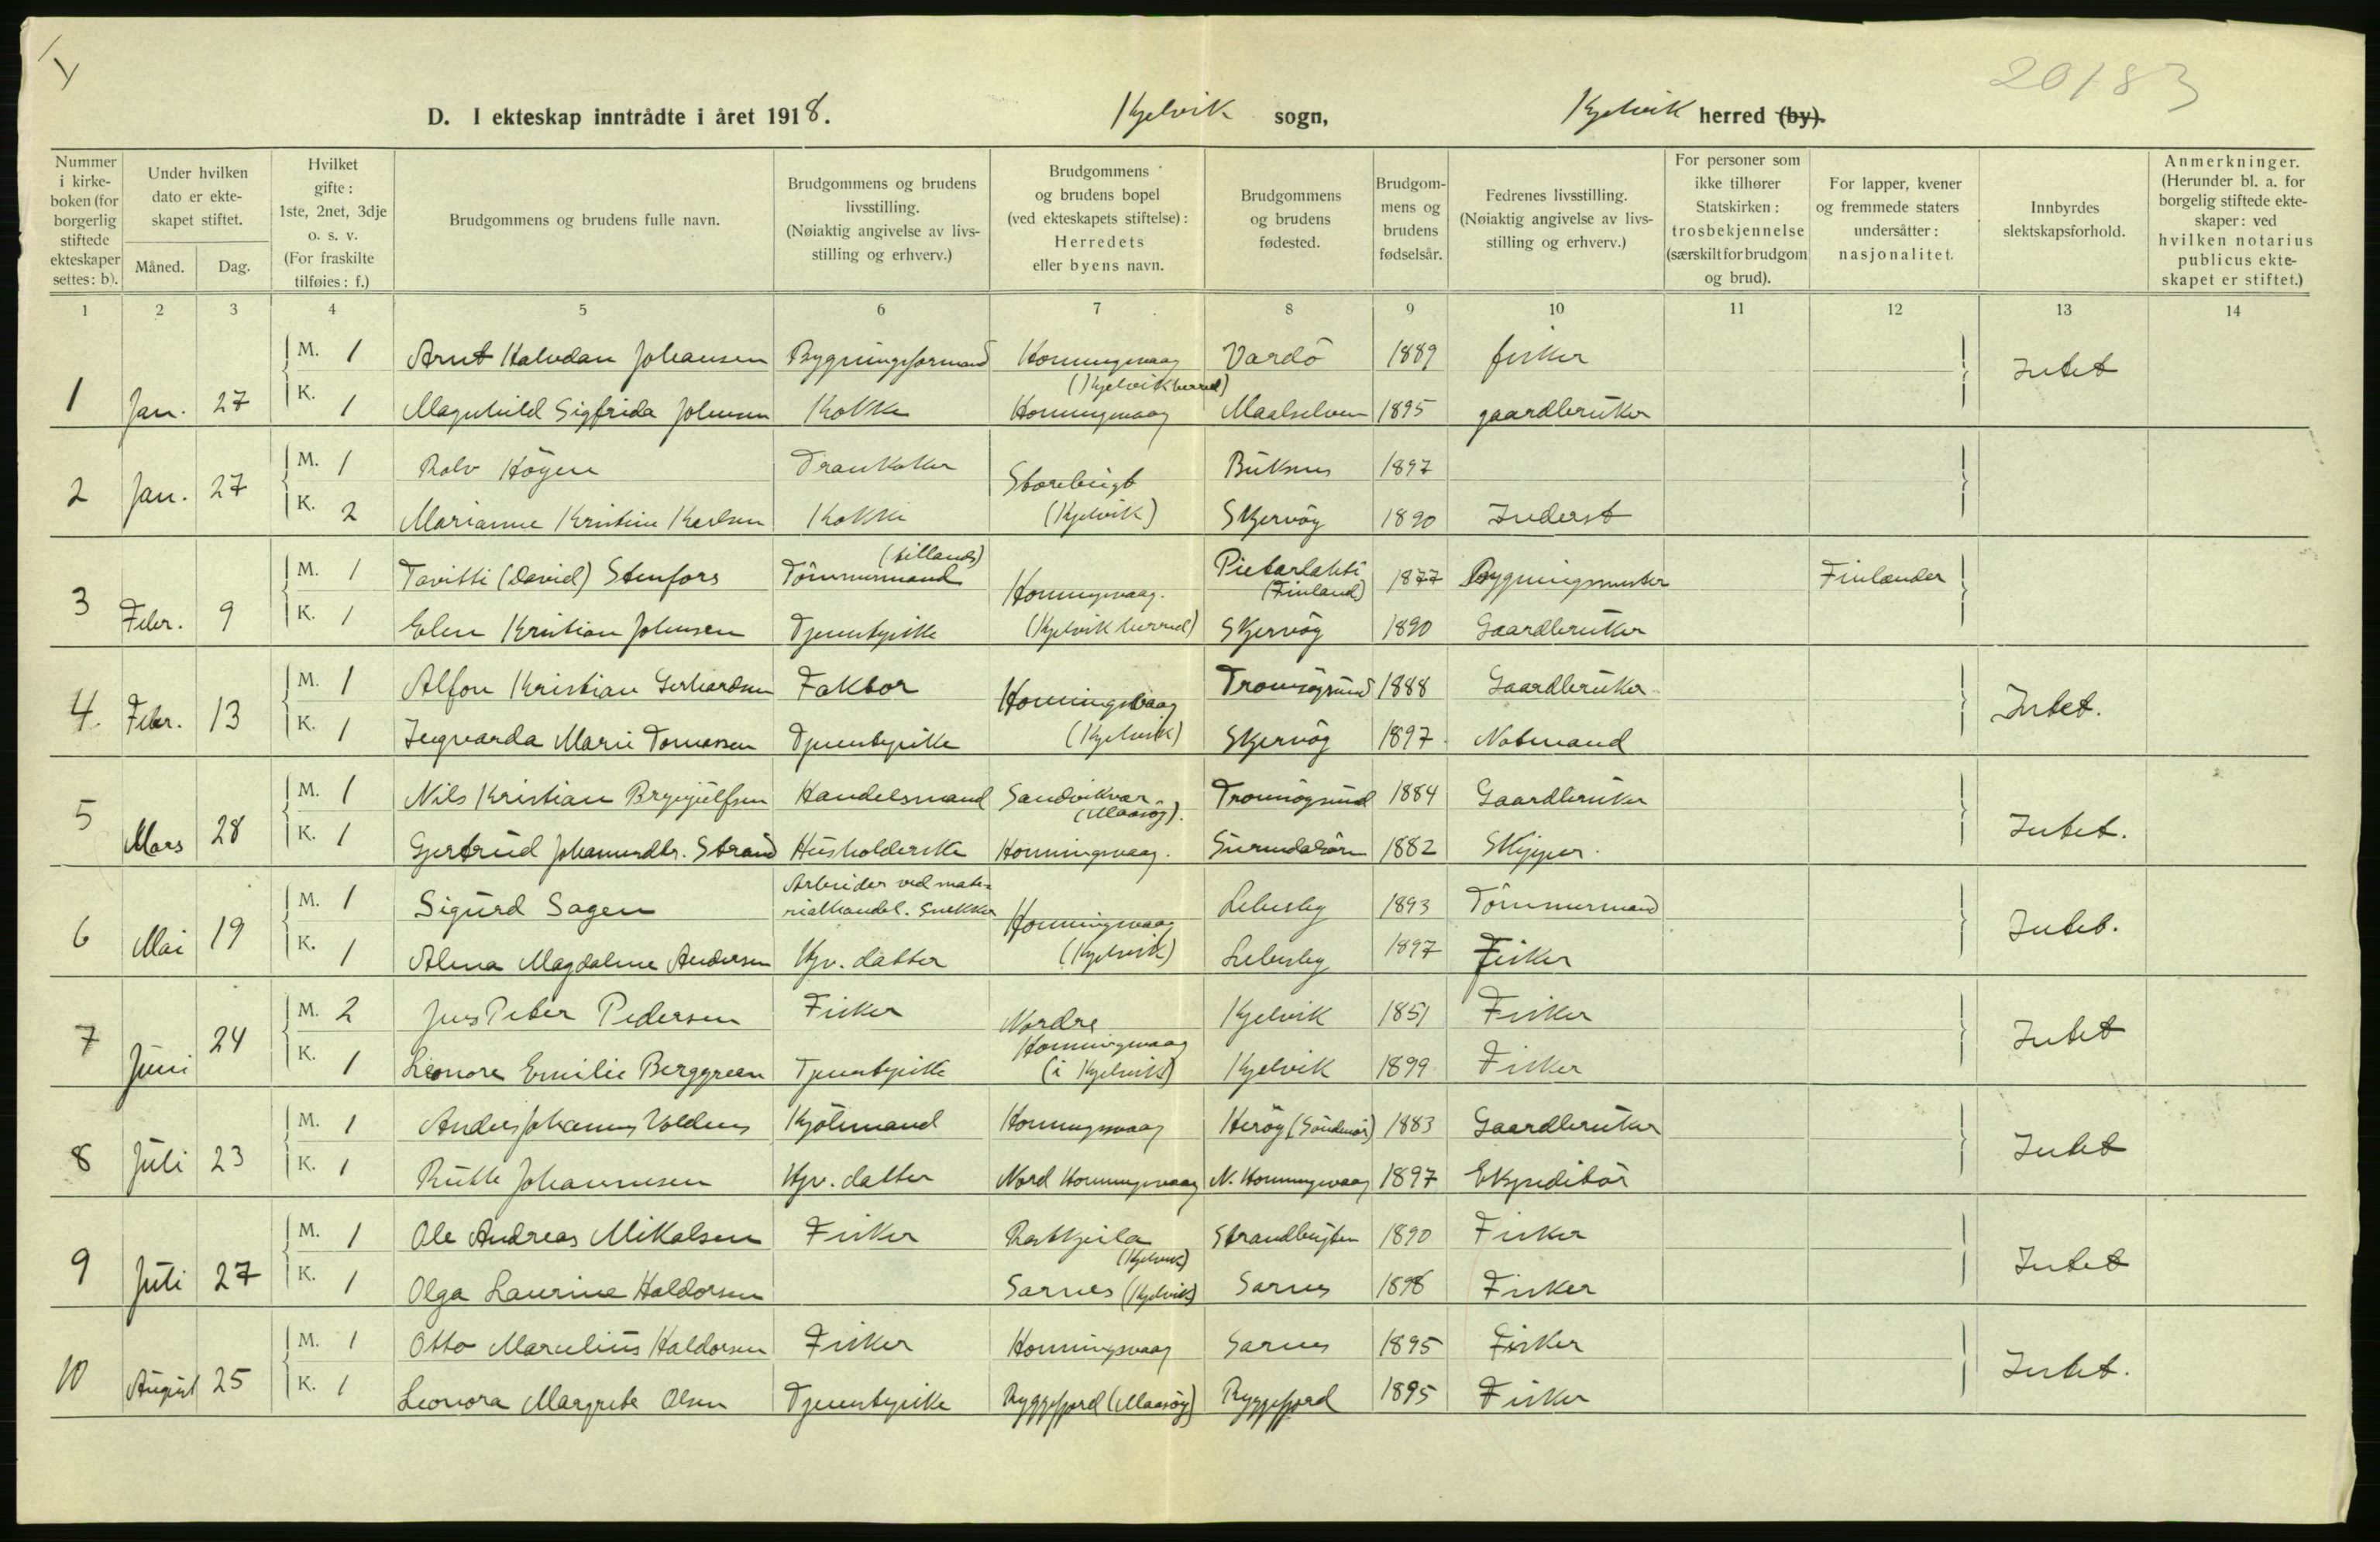 20183
D. I ekteskap inntrådte i året 1918. Kjelvik sogn, Kjelvik herred (by).
Nummer i kirkeboken (for borgerlig stiftede ekteskaper settes: b).
Under hvilken dato er ekteskapet stiftet.
Måned. Dag.
Hvilket gifte: 1ste, 2net, 3dje o. s. v. (For fraskilte tilføies: f.)
Brudgommens og brudens fulle navn.
Brudgommens og brudens livsstilling. (Nøiaktig angivelse av livsstilling og erhverv.)
Brudgommens og brudens bopel (ved ekteskapets stiftelse): Herredets eller byens navn.
Brudgommens og brudens fødested.
Brudgommens og brudens fødselsår.
Fedrenes livsstilling. (Nøiaktig angivelse av livsstilling og erhverv.)
For personer som ikke tilhører Statskirken: trosbekjennelse (særskilt for brudgom og brud).
For lapper, kvener og fremmede staters undersåtter: nasjonalitet.
Innbyrdes slektskapsforhold.
Anmerkninger. (Herunder bl. a. for borgelig stiftede ekteskaper: ved hvilken notarius publicus ekteskapet er stiftet.)
1 2 3 4 5 6 7 8 9 10 11 12 13 14
1 Jan. 27
M. 1 Arnt Halvdan Johansen Bygningsformand Honningsvaag (Kjelvik herred) Vardö 1889 fisker Intet
K. 1 Magnhild Sigfrida Johnsen Kokke Honningsvaag Maalselven 1895 gaardbruker
2 Jan. 27
M. 1 Rolv Höyen Trankoker Storebugt (Kjelvik) Buksnes 1897
K. 2 Marianne Kristine Karlsen Kokke Skjervöy 1890 Inderst
3 Febr. 9
M. 1 Tavitti (David) Stenfors Tömmermand (tillands) Honningsvaag. (Kjelvik herred) Pietarlahti (Finland) 1877 Bygningsmester Finlænder
K. 1 Elen Kristian Johnsen Tjenestepike Skjervöy 1890 Gaardbruker
4. Febr. 13
M. 1 Alfon Kristian Gerhardsen Faktor Honningsvaag (Kjelvik) Tromsöysund 1888 Gaardbruker Intet.
K. 1 Ingvarda Marie Tomassen Tjenestepike Skjervöy 1897 Notmand
5 Mars 28
M. 1 Nils Kristian Brynjulfsen Handelsmand Sandvikvær (Maasöy). Tromsöysund 1884 Gaardbruker Intet.
K. 1 Gjertrud Johannesdtr. Strand Husholderske Honningsvaag. Surendalsören 1882 Skipper.
6 Mai 19
M. 1 Sigurd Sagen Arbeider ved materialhandel. Snekker Honningsvaag (Kjelvik) Lebesby 1893 Tömmermand Intet.
K. 1 Alma Magdalene Andersen Hjv. datter Lebesby 1897 Fisker
7 Juni 24
M. 2 Jens Peter Pedersen Fisker Nordre Honningsvaag (i Kjelvik) Kjelvik 1851 Fisker Intet
K. 1 Leonore Emilie Berggreen Tjenestepike Kjelvik 1899 Fisker
8 Juli 23
M. 1 Anders Johannes Voldnes Kjölemand Honningsvaag Heröy (Söndmör) 1883 Gaardbruker Intet
K. 1 Ruth Johannesen Hjv. datter Nord Honningsvaag N. Honningsvaag 1897 Ekspeditör
9 Juli 27
M. 1 Ole Andreas Mikalsen Fisker (Kjelvik) Strandbugten 1890 Fisker Intet
K. 1 Olga Laurine Haldorsen Sarnes (Kjelvik) Sarnes 1898 Fisker
10 August 25
M. 1 Otto Marcelius Haldorsen Fisker Honningsvaag Sarnes 1895 Fisker Intet.
K. 1 Leonora Margrete Olsen Tjenestepike Ryggefjord (Maasöy) Ryggefjord 1895 Fisker